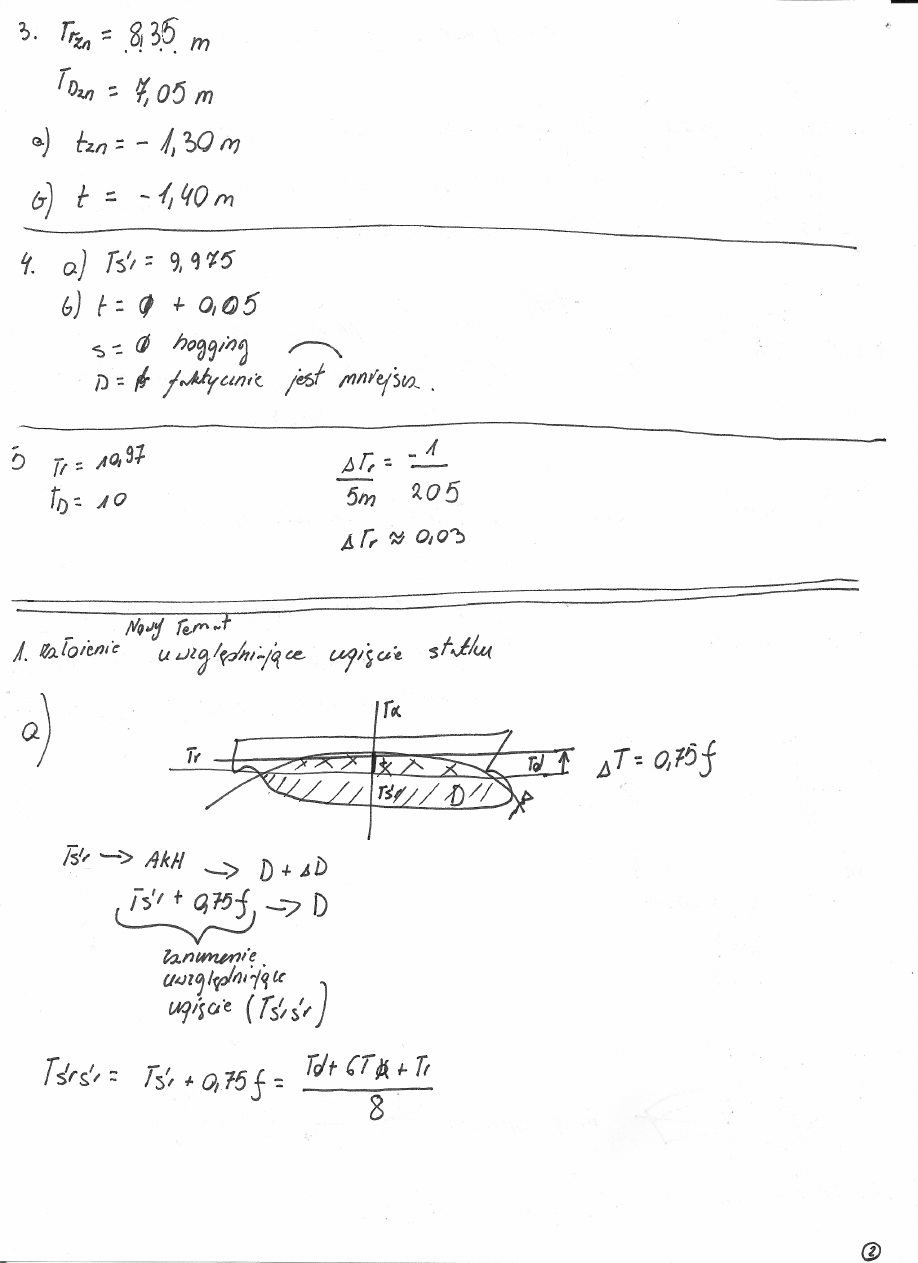 3. Trzn = 8,35 m
TDzn = 7,05 m
a) tzn = - 1,30 m
b) t = - 1,40 m
4. a) Tśr = 9,975
b) t = 0 + 0,05
s = 0 hogging
D = faktycznie jest mniejsza.
5 Tr = 10,97
TD = 10
ΔTr / 5m = -1 / 205
ΔTr ≈ 0,03
Nowy Temat
1. założenie uwzględniające ugięcie statku
a)
Tα
Tr
Td
ΔT = 0,75 f
Tśr
D
Tśr → AKH → D + ΔD
Tśr + 0,75 f → D
zanurzenie
uwzględniające
ugięcie (Tśrśr)
Tśrśr = Tśr + 0,75 f = Td + 6T + Tr / 8
2